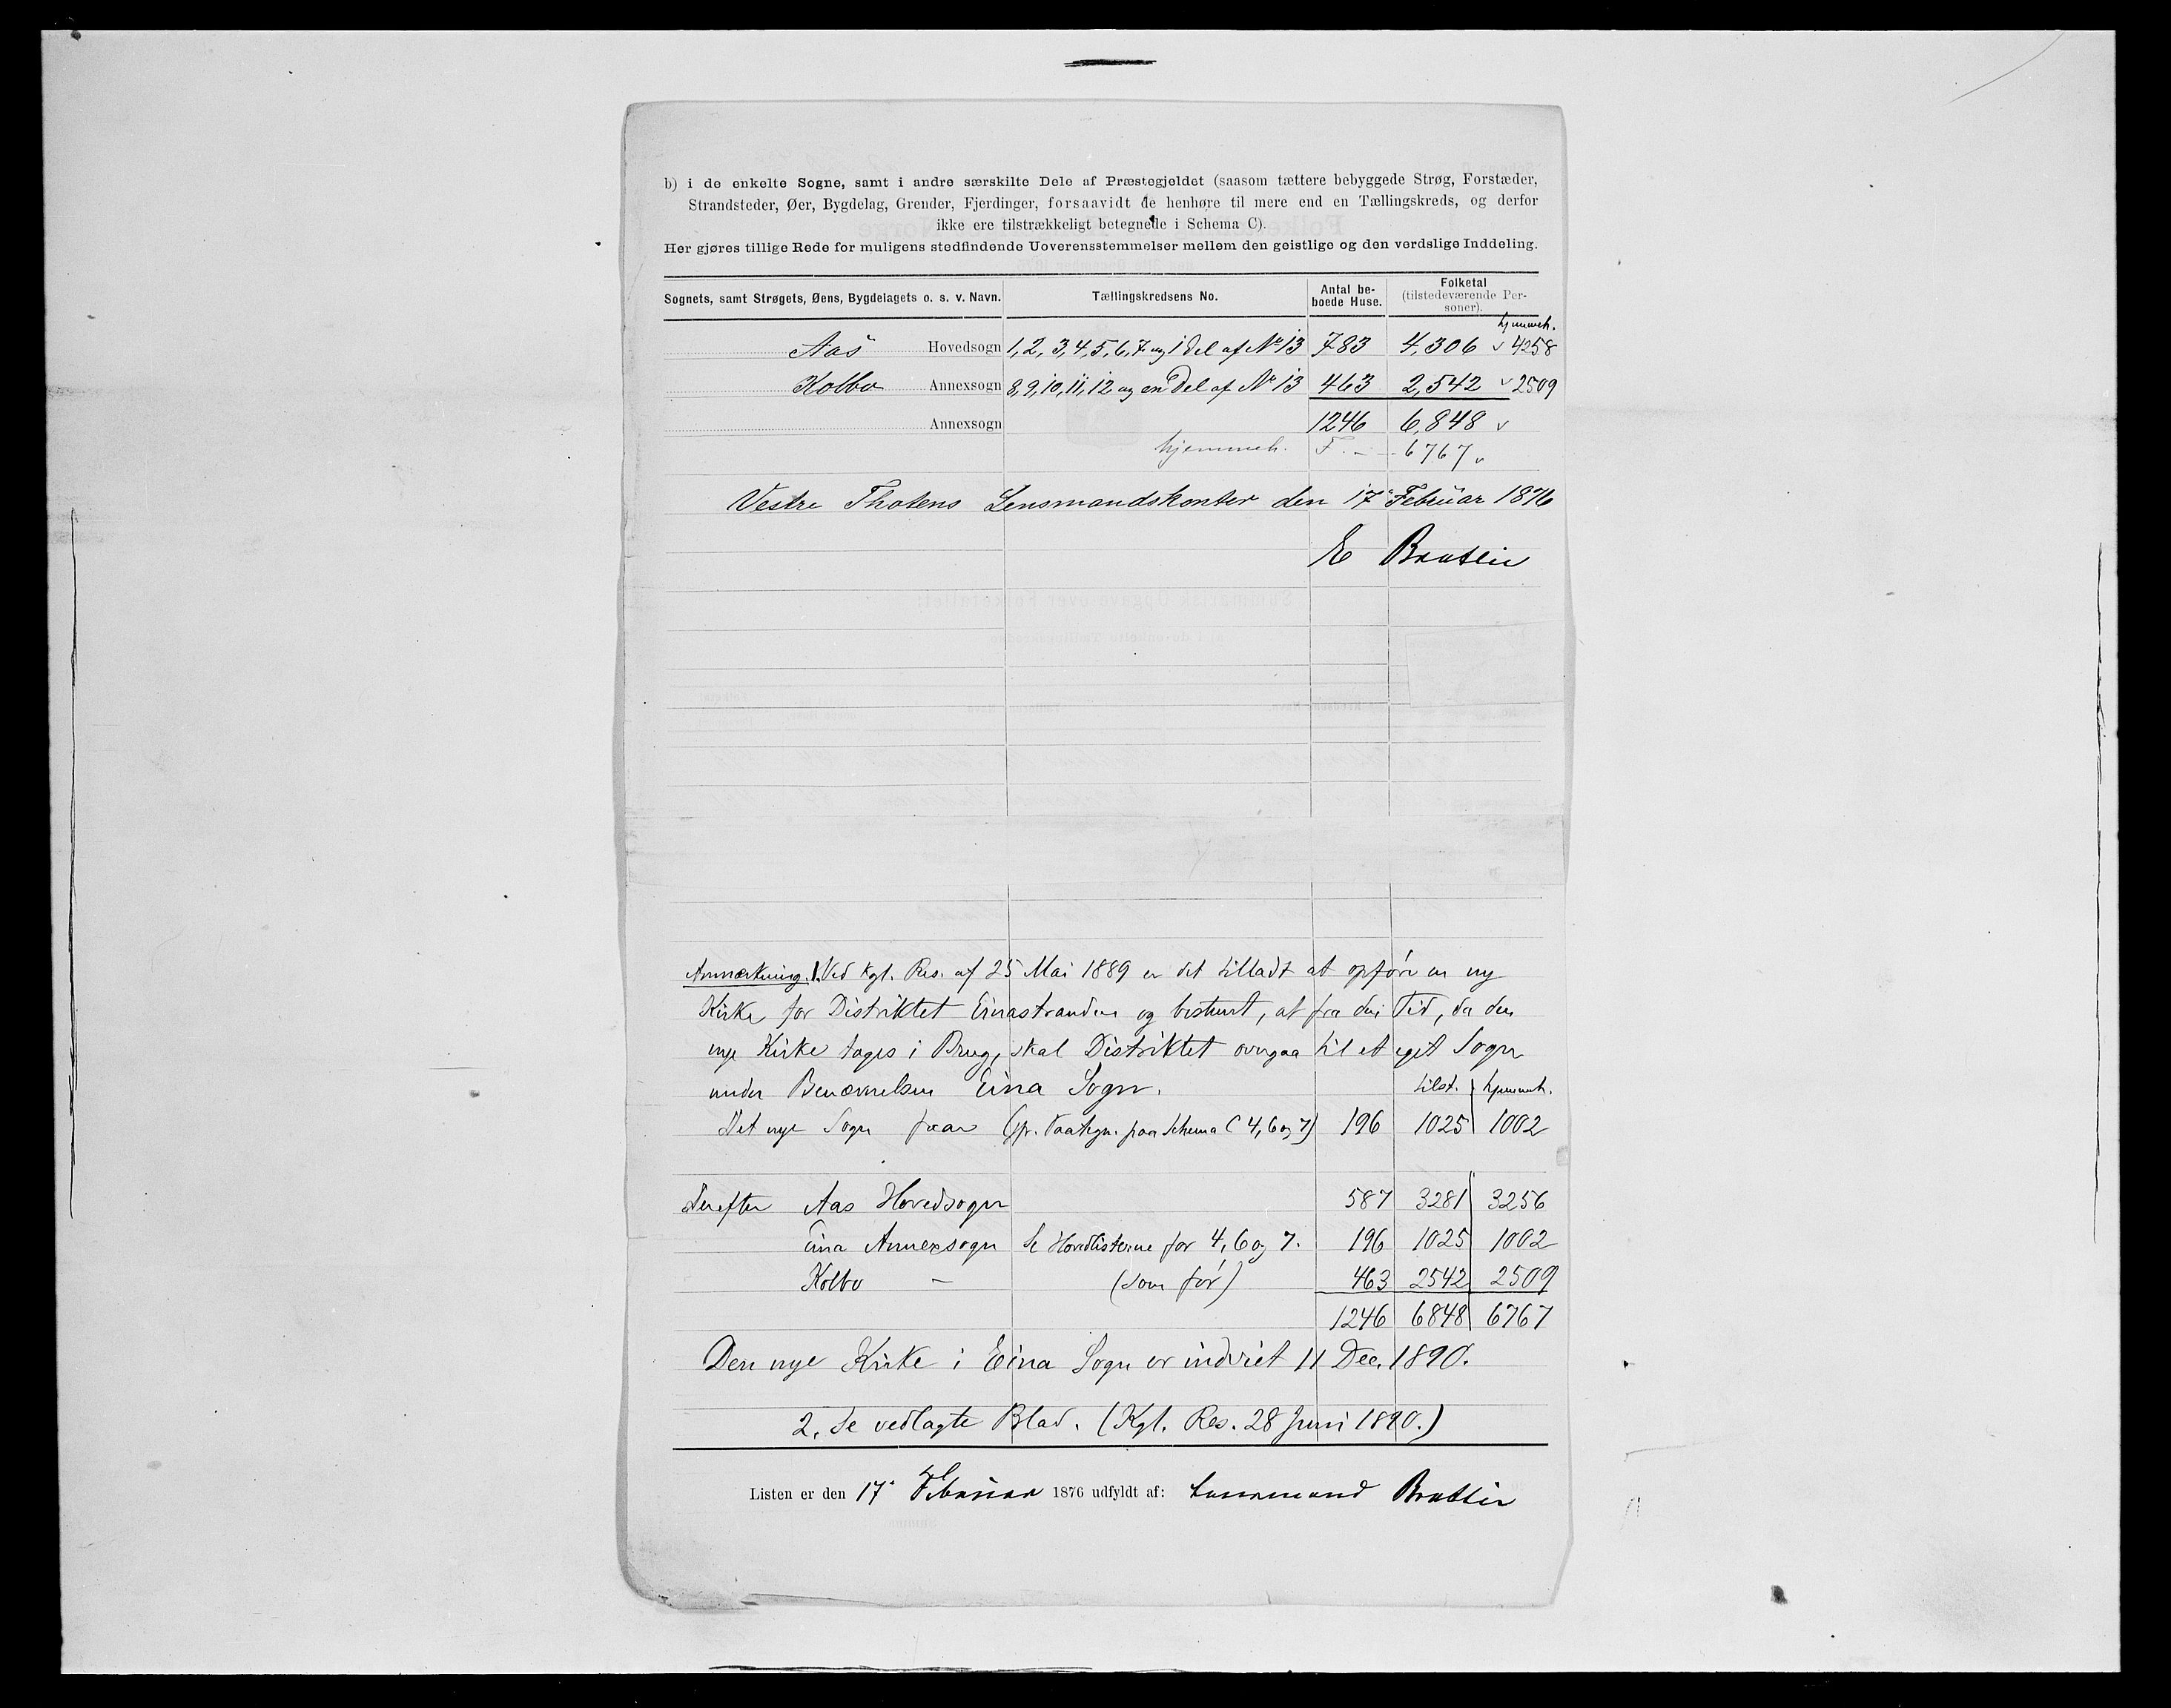 b) i de enkelte Sogne, samt i andre særskilte Dele af Præstegjeldet (saasom tættere bebyggede Strøg, Forstæder,
Strandsteder, Øer, Bygdelag, Grender, Fjerdinger, forsaavidt de henhøre til mere end en Tællingskreds, og derfor
ikke ere tilstrækkeligt betegnede i Schema C).
Her gjøres tillige Rede for muligens stedfindende Uoverensstemmelser mellem den geistlige og den verdslige Inddeling.
Sognets, samt Strøgets, Øens, Bygdelagets o. s. v. Navn. Tællingskredsens No. Antal beboede Huse. Folketal (tilstedeværende Personer).
hjemmeh.
Aas Hovedsogn 1, 2, 3, 4, 5, 6, 7 og 1 Del af No 13 783 4,306 v 4258
Kolbo Annexsogn 8, 9, 10, 11, 12 og en Del af No 13 463 2,542 v 2509
Annexsogn 1246 6,848 v
hjemmeh. F. - 6767 v
Vestre Thotens Lensmandskontor den 17 Februar 1876
E Bratlie
Anmærkning. 1. Ved Kgl. Res. af 25 Mai 1889 er det tilladt at opføre en ny
Kirke for Distriktet Einastranden og bestemt, at fra den Tid, da den
nye Kirke tages i Brug, skal Distriktet overgaa til et eget Sogn
under Benævnelsen Eina Sogn. tilst. hjemmeh.
Det nye Sogn faar (pr. Paategn. paa Schema C 4, 6 og 7) 196 1025 1002
Derefter Aas Hovedsogn 587 3281 3256
Eina Annexsogn Se Hovedlisterne for 4, 6 og 7. 196 1025 1002
Kolbo - (som før) 463 2542 2509
1246 6848 6767
Den nye Kirke i Eina Sogn er indviet 11 Dec. 1890.
2. Se vedlagte Blad. (Kgl. Res. 28 Juni 1890.)
Listen er den 17 Februar 1876 udfyldt af: Lensmand Bratlie